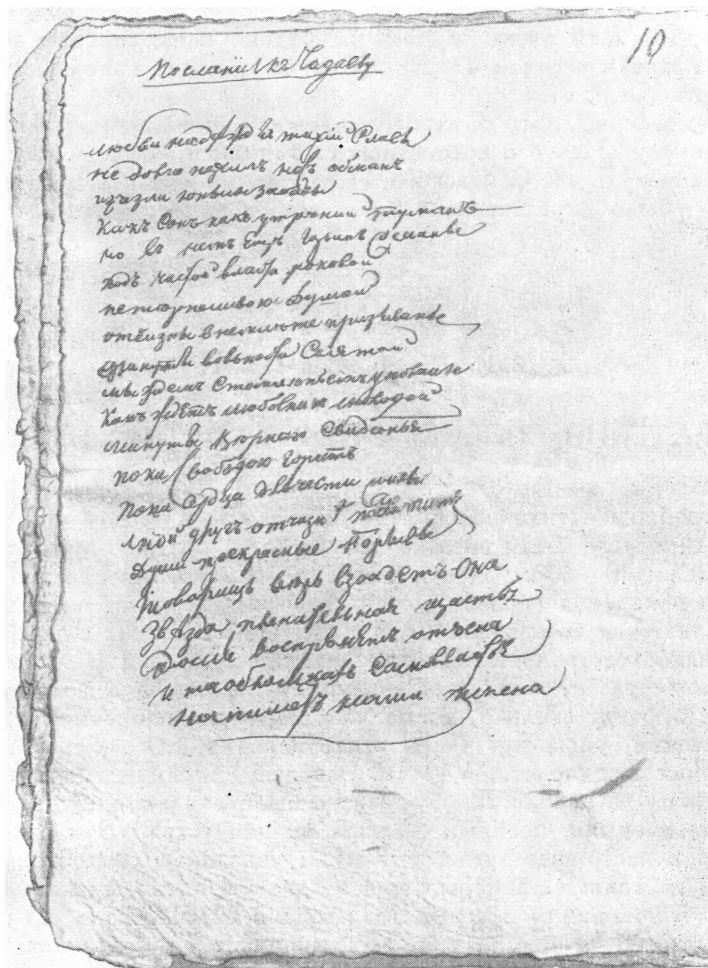 10
Посланиъ къ Чадаеву
любви надежды тихой Славы
не долго нежилъ насъ обманъ
изчезли юныя забавы
какъ Сонъ какъ утренний туманъ
но въ насъ Ещъ
подъ частою власти роковой
нетерпеливою душой
отчизны внемлите призыванье
Святой
мы ждемъ Стомленьемъ упованья
какъ ждетъ любовникъ молодой
минуты верного Свиданья
пока Свободою горитъ
пока сердца для чести живы
любой другъ отчизне
души прекрасные порывы
Товарищъ верь взойдетъ Она
Звезда пленительная щастья
россия воспрянетъ отъсна
и на обломкахъ Самовластья
напишетъ наши имена